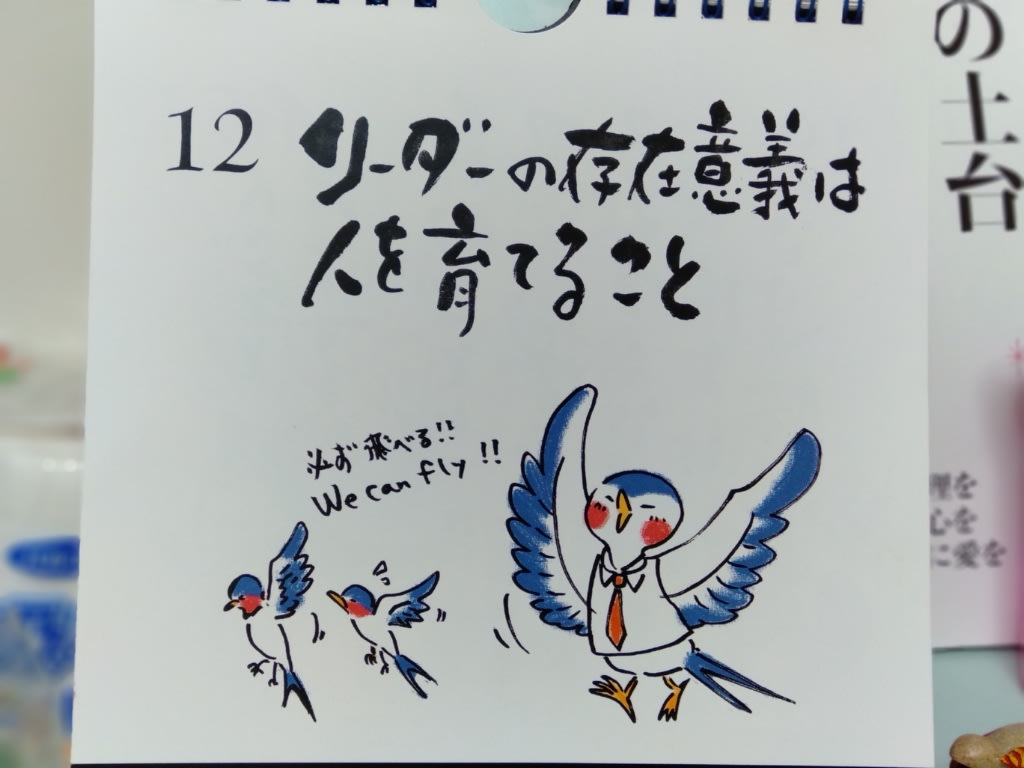 12 リーダーの存在意義は
人を育てること
必ず飛べる!!
We can fly !!
の土台
理を
心を
に愛を